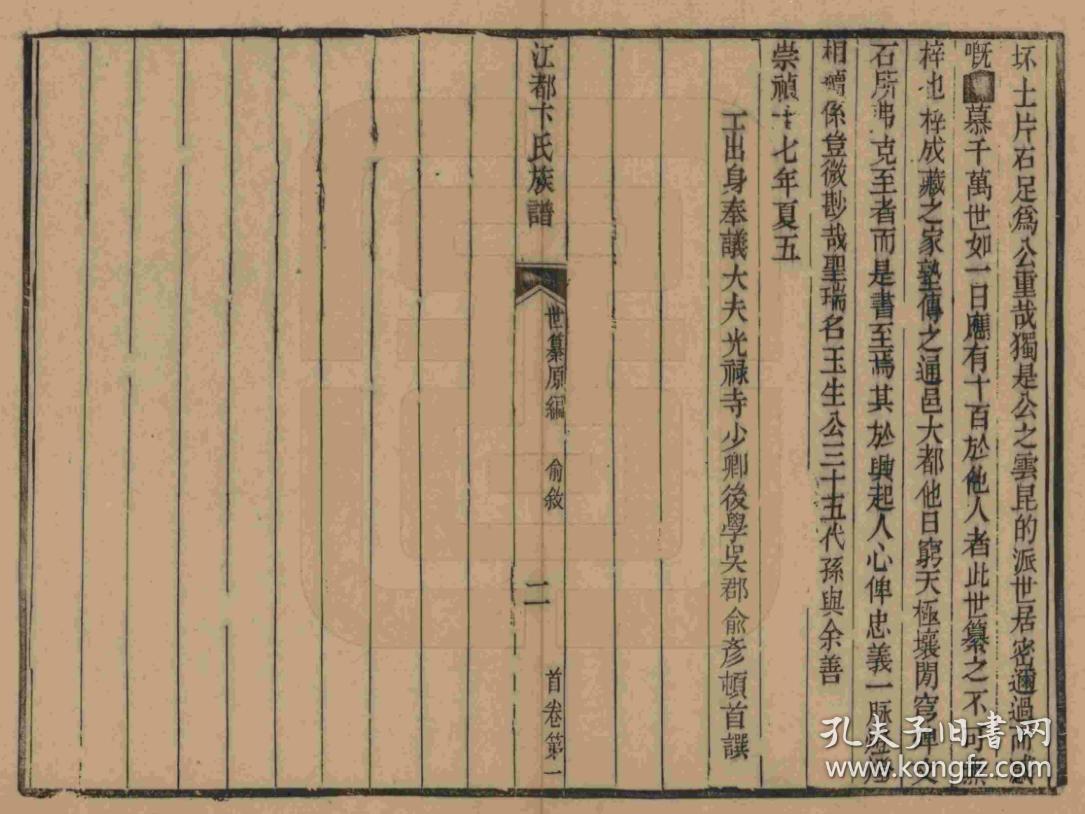 坏土片石足爲公重哉獨是公之雲昆的派世居密邇過而
嘅慕千萬世如一日應有十百於他人者此世纂之不可
梓也梓成藏之家塾傳之通邑大都他日窮天極壤閒穹
石所弗克至者而是書至焉其於興起人心俾忠義一脈
相續係豈微尠哉聖瑞名玉生公三十五代孫與余善
崇禎十七年夏五
工出身奉議大夫光祿寺少卿後學吳郡俞彥頓首譔
江都卞氏族譜
世纂原編 俞敘 二 首卷第一
孔夫子旧书网
www.kongfz.com